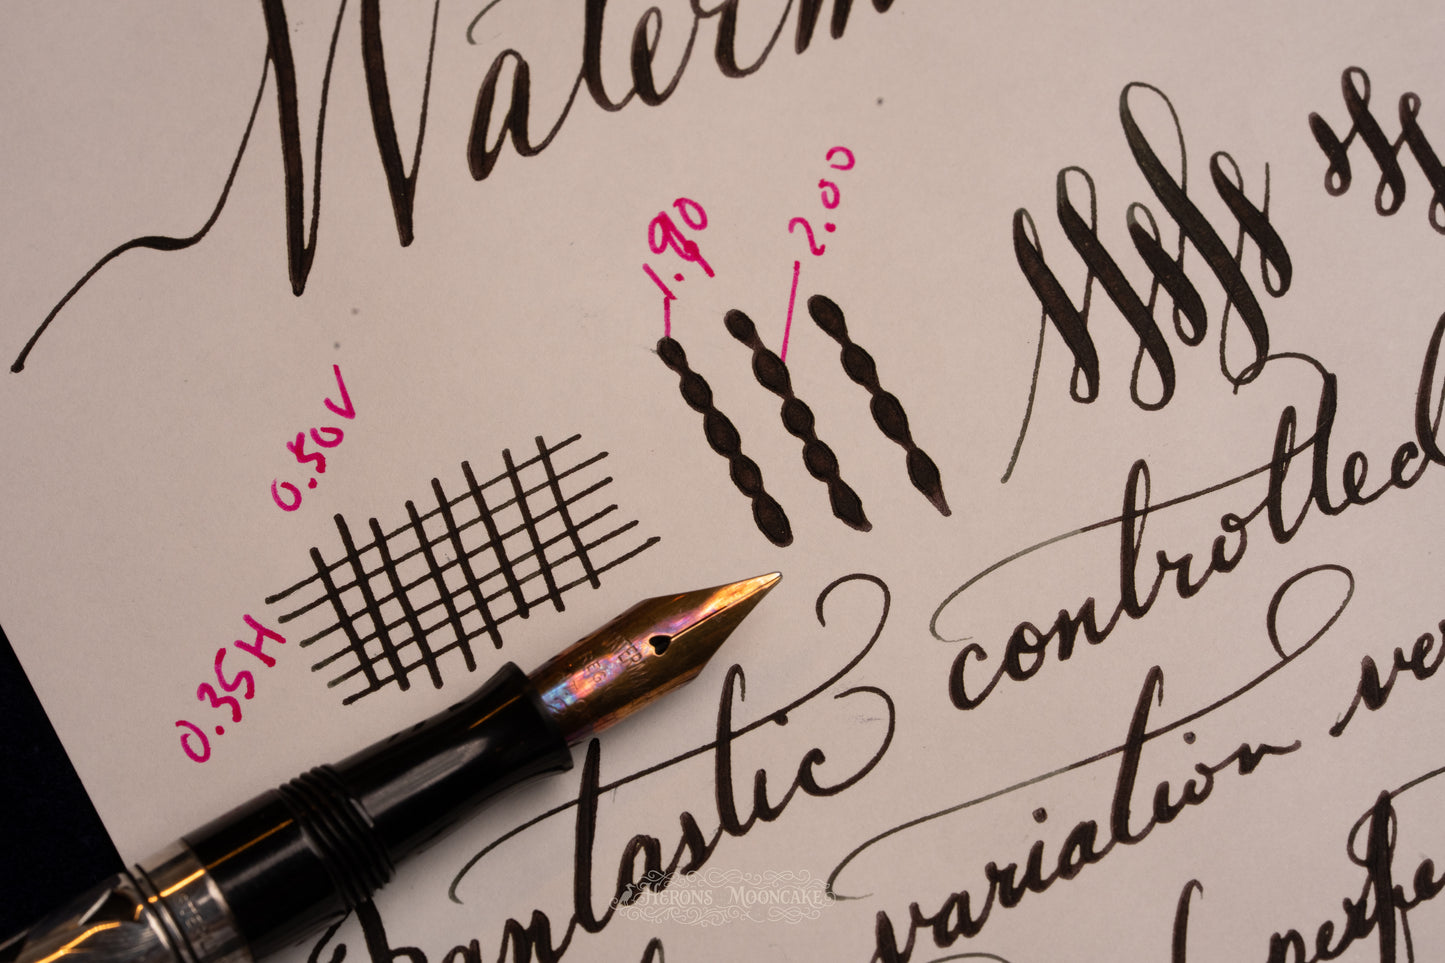 Waterm
1.90
2.00
0.50V
0.35H
controlled
Fantastic
variation ve
perfe
HERONS MOONCAKE